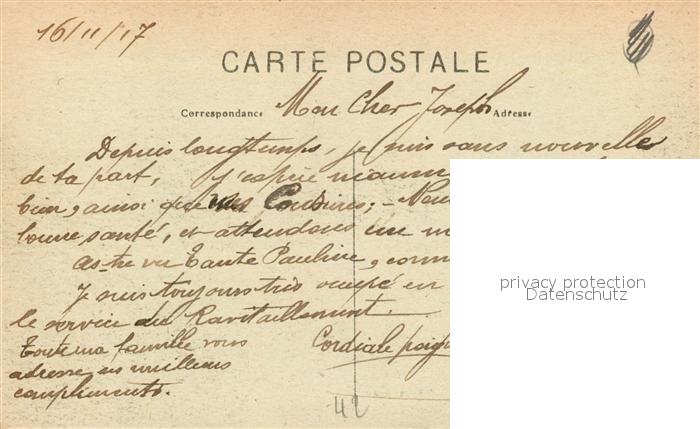 16/11/17
CARTE POSTALE
Correspondance Mon Cher Joseph Adresse
Depuis longtemps, je suis sans nouvelle
de ta part, j'espère
bien, ainsi que Cousines; - Nous
bonne santé, et attendons un
as-tu vu Tante Pauline,
Je suis toujours très occupé en
le service du Ravitaillement.
Toute ma famille vous
adresse ses meilleurs
compliments.
Cordiale
42
privacy protection
Datenschutz